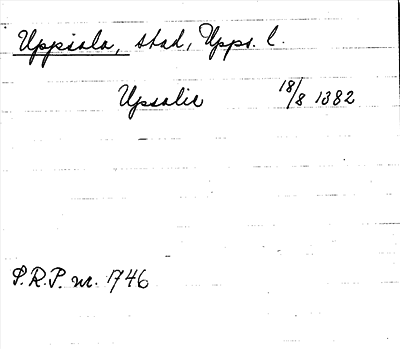 Uppsala, stad, Upps. l.
Upsalie 18/8 1382
P.R.P. nr. 1746